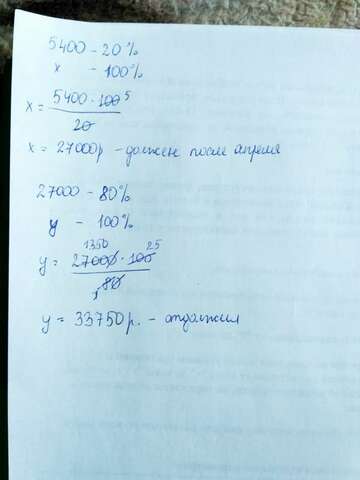 5400 - 20%
x - 100%
x = 5400 · 100 5
20
x = 27000р - должен после апреля
27000 - 80%
y - 100%
1350 25
y = 27000 · 100
80
y = 33750р. - одолжил